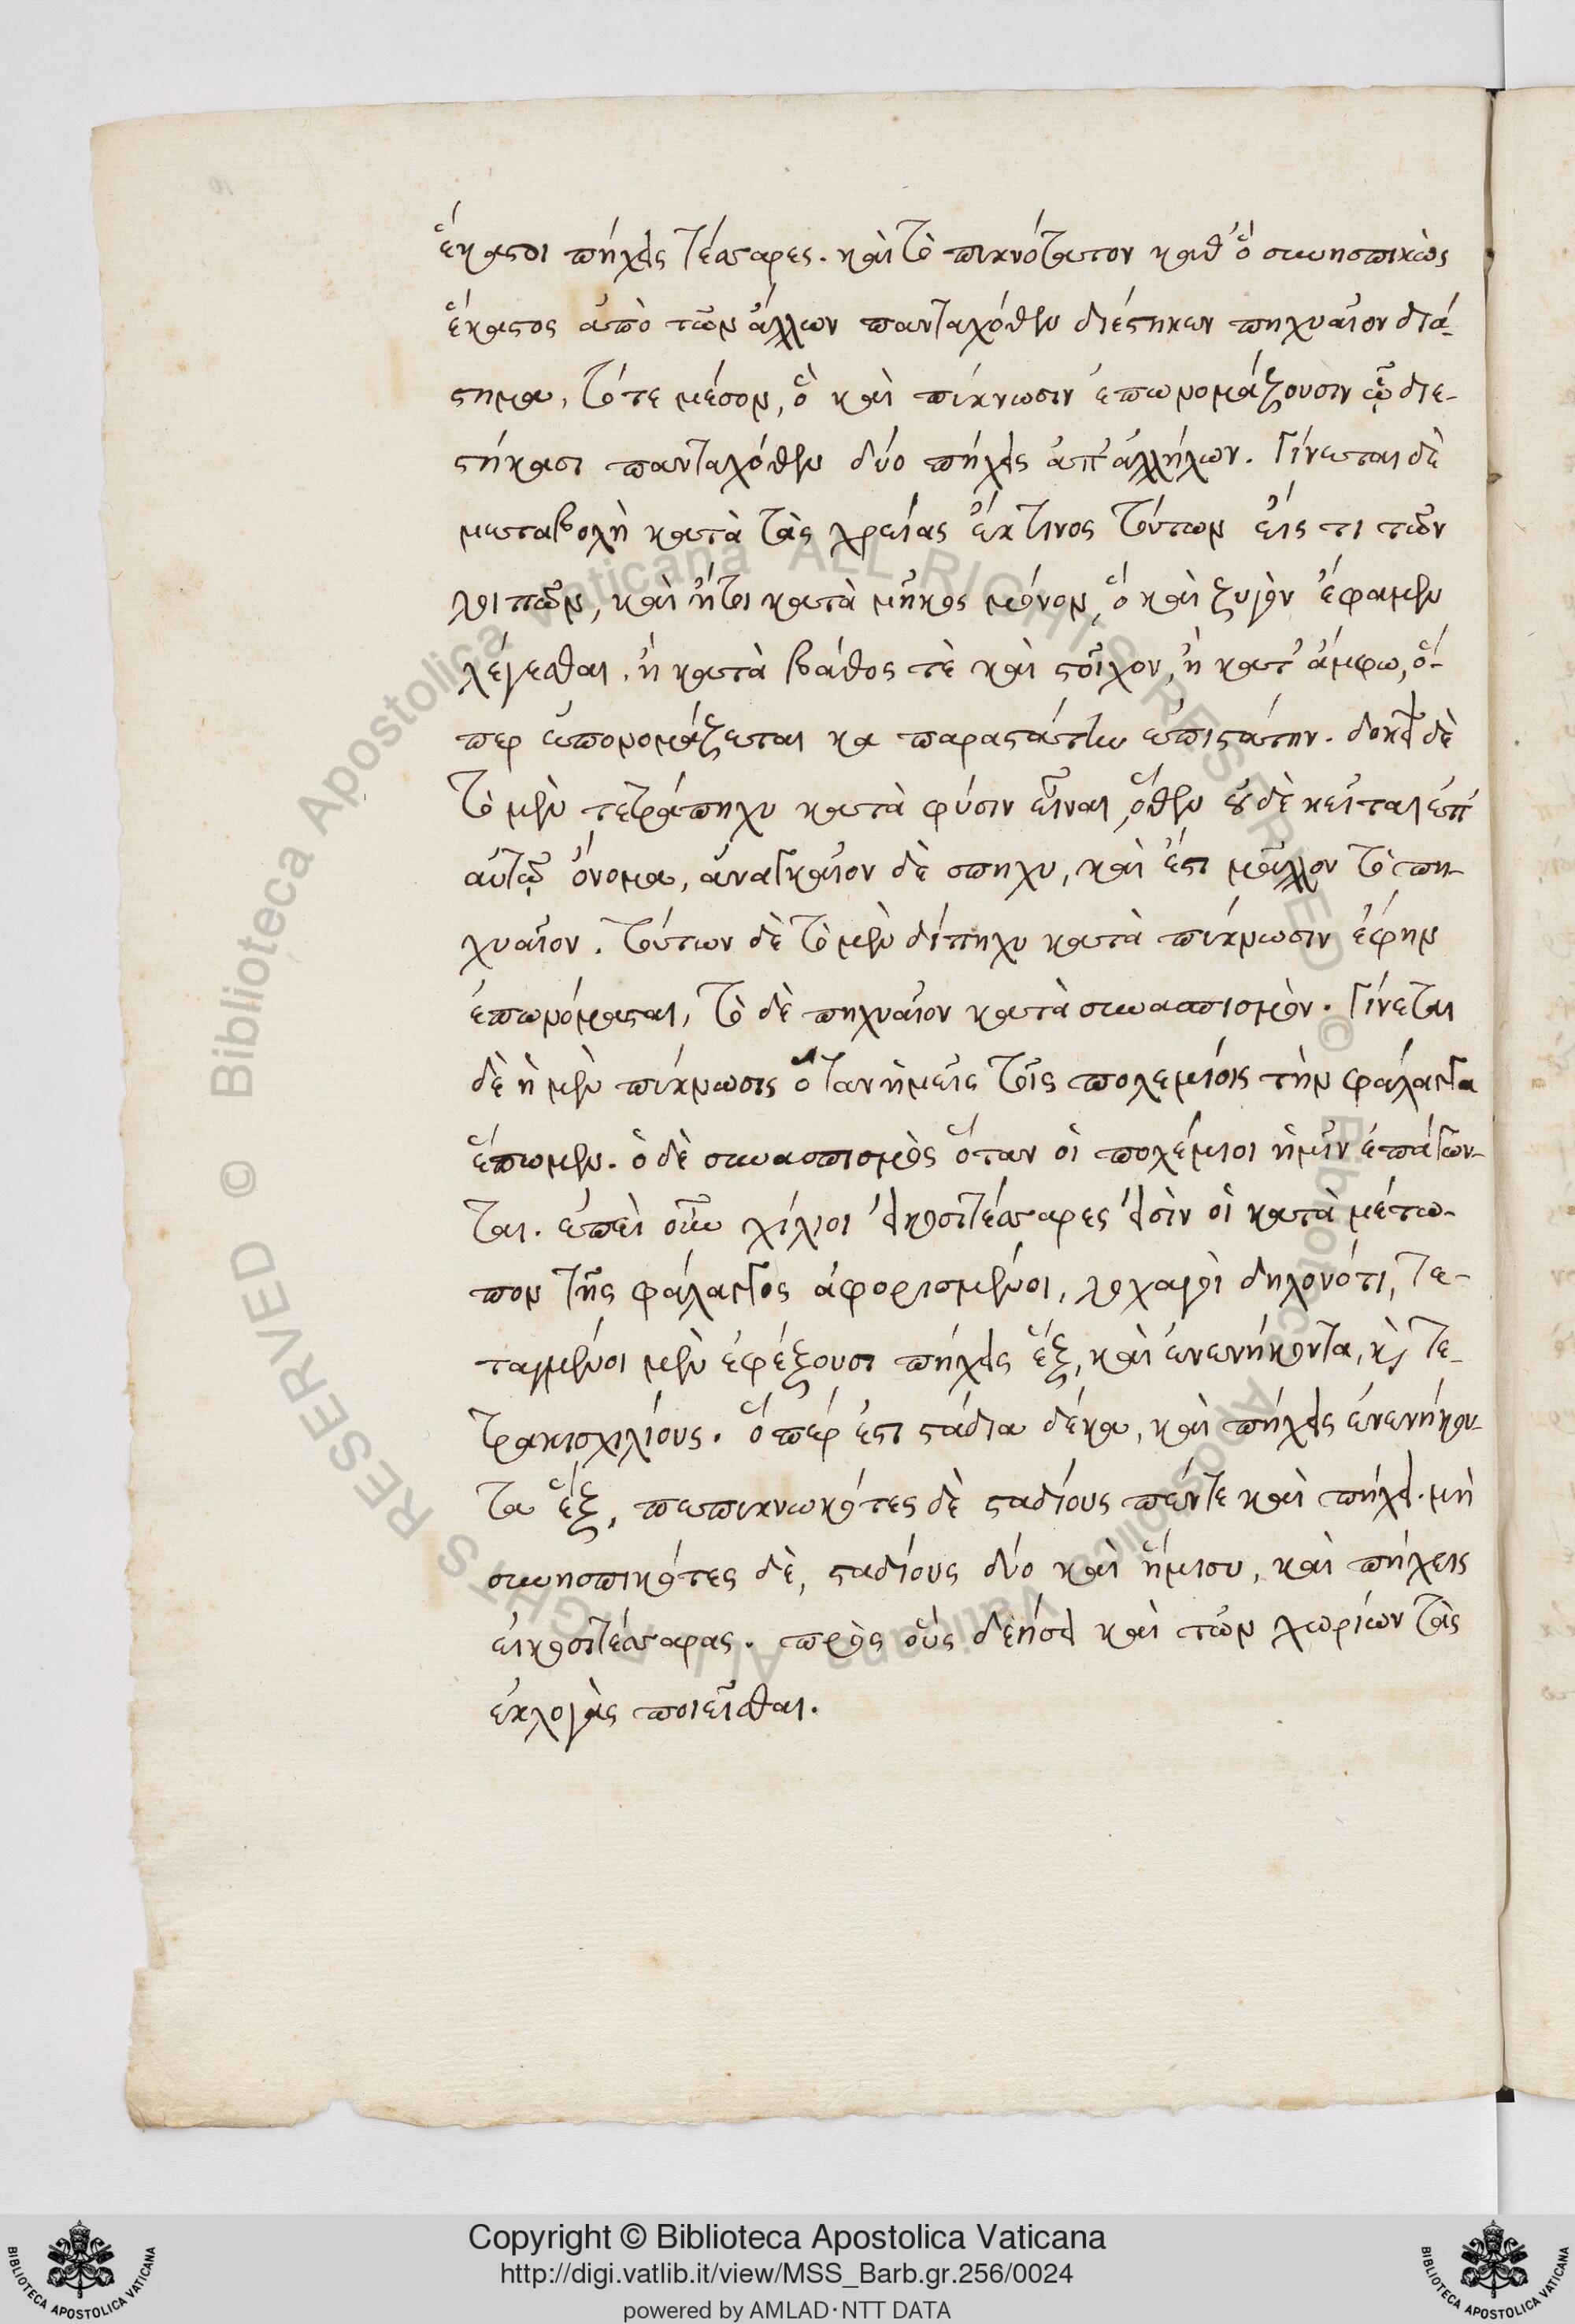 ἕκαστοι πήχεις τέσσαρες. καὶ τὸ πυκνότατον καθ' ὃ συνησπικὼς
ἕκαστος ἀπὸ τῶν ἄλλων πανταχόθεν διέστηκεν πηχυαῖον διά-
στημα, τό τε μέσον, ὃ καὶ πύκνωσιν ἐπωνομάζουσιν ᾧ διε-
στήκασι πανταχόθεν δύο πήχεις ἀπ' ἀλλήλων. Γίνεται δὲ
μεταβολὴ κατὰ τὰς χρείας ἔκ τινος τούτων εἴς τι τῶν
λοιπῶν, καὶ ἤτοι κατὰ μῆκος μόνον, ὃ καὶ ζυγὸν ἔφαμεν
λέγεσθαι, ἢ κατὰ βάθος τὲ καὶ στοῖχον, ἢ κατ' ἄμφω, ὅ-
περ ἐπονομάζεται κα παραστάτην ἐπιστάτην. δοκεῖ δὲ
τὸ μὲν τετράπηχυ κατὰ φύσιν εἶναι, ὅθεν οὐδὲ κεῖται ἐπ'
αὐτῷ ὄνομα, ἀναγκαῖον δὲ σπηχυ, καὶ ἔτι μᾶλλον τὸ πη-
χυαῖον. τούτων δὲ τὸ μὲν δίπηχυ κατὰ πύκνωσιν ἔφην
ἐπωνόμασται, τὸ δὲ πηχυαῖον κατὰ συνασπισμόν. Γίνεται
δὲ ἡ μὲν πύκνωσις ὅταν ἡμεῖς τοῖς πολεμίοις τὴν φάλαγγα
ἔπωμεν. ὁ δὲ συνασπισμὸς ὅταν οἱ πολέμιοι ἡμῖν ἐπάγων-
ται. ἐπεὶ οὖν χίλιοι εἰκοσιτέσσαρες εἰσὶν οἱ κατὰ μέτω-
πον τῆς φάλαγγος ἀφορισμένοι, λοχαγοὶ δηλονότι, τε-
ταγμένοι μὲν ἐφέξουσι πήχεις ἓξ, καὶ ἐνενήκοντα, κὶ τε-
τρακισχιλίους. ὅπερ ἐστι στάδια δέκα, καὶ πήχεις ἐνενήκον-
τα ἓξ, πεπυκνωκότες δὲ σταδίους πέντε καὶ πήχει. μὴ
συνησπικότες δὲ, σταδίους δύο καὶ ἥμισυ, καὶ πήχεις
εἰκοσιτέσσαρας. πρὸς οὓς δεήσει καὶ τῶν χωρίων τὰς
ἐκλογὰς ποιεῖσθαι.
© Biblioteca Apostolica Vaticana ALL RIGHTS RESERVED © Biblioteca Apostolica Vaticana ALL RIGHTS RESERVED
Copyright © Biblioteca Apostolica Vaticana
http://digi.vatlib.it/view/MSS_Barb.gr.256/0024
powered by AMLAD·NTT DATA
BIBLIOTECA APOSTOLICA VATICANA
BIBLIOTECA APOSTOLICA VATICANA